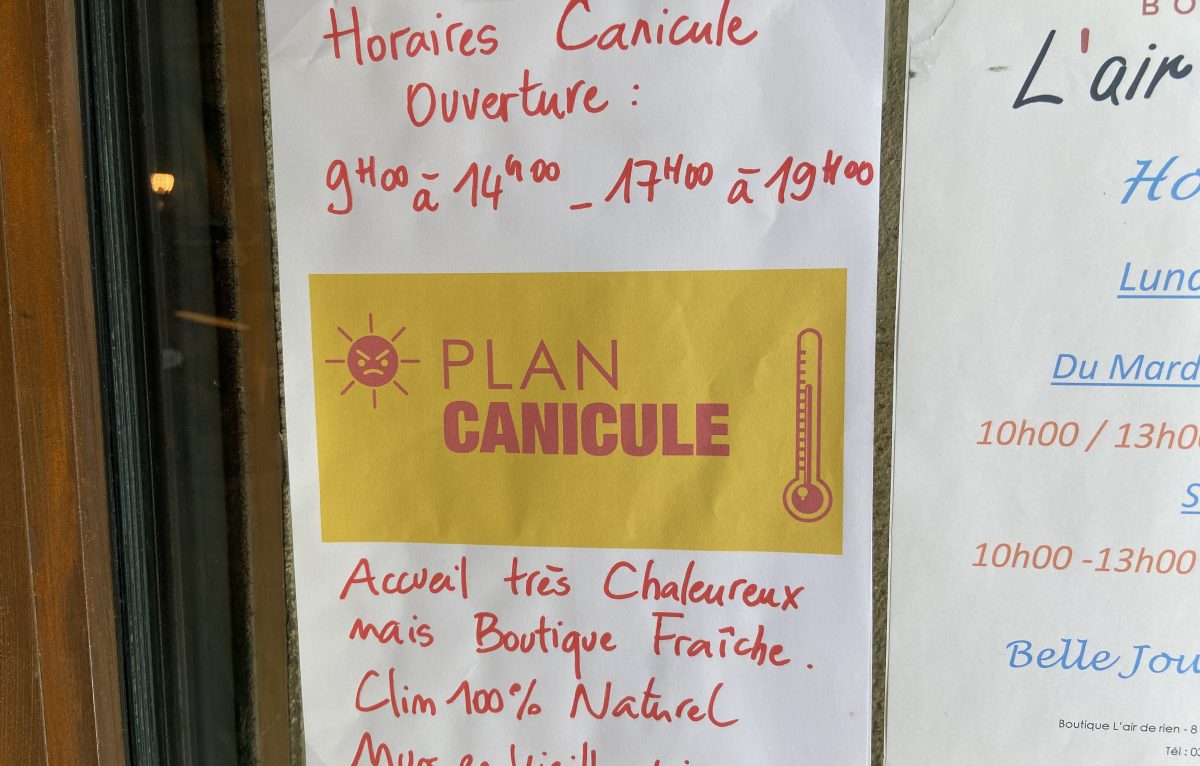 Horaires Canicule
Ouverture :
9H00 à 14h00 - 17H00 à 19H00
PLAN
CANICULE
Accueil très Chaleureux
mais Boutique Fraîche.
Clim 100% Naturel
BO
L'air
Ho
Lund
Du Mard
10h00 / 13h0
S
10h00 -13h00
Belle Jou
Boutique L'air de rien - 8
Tél : 03